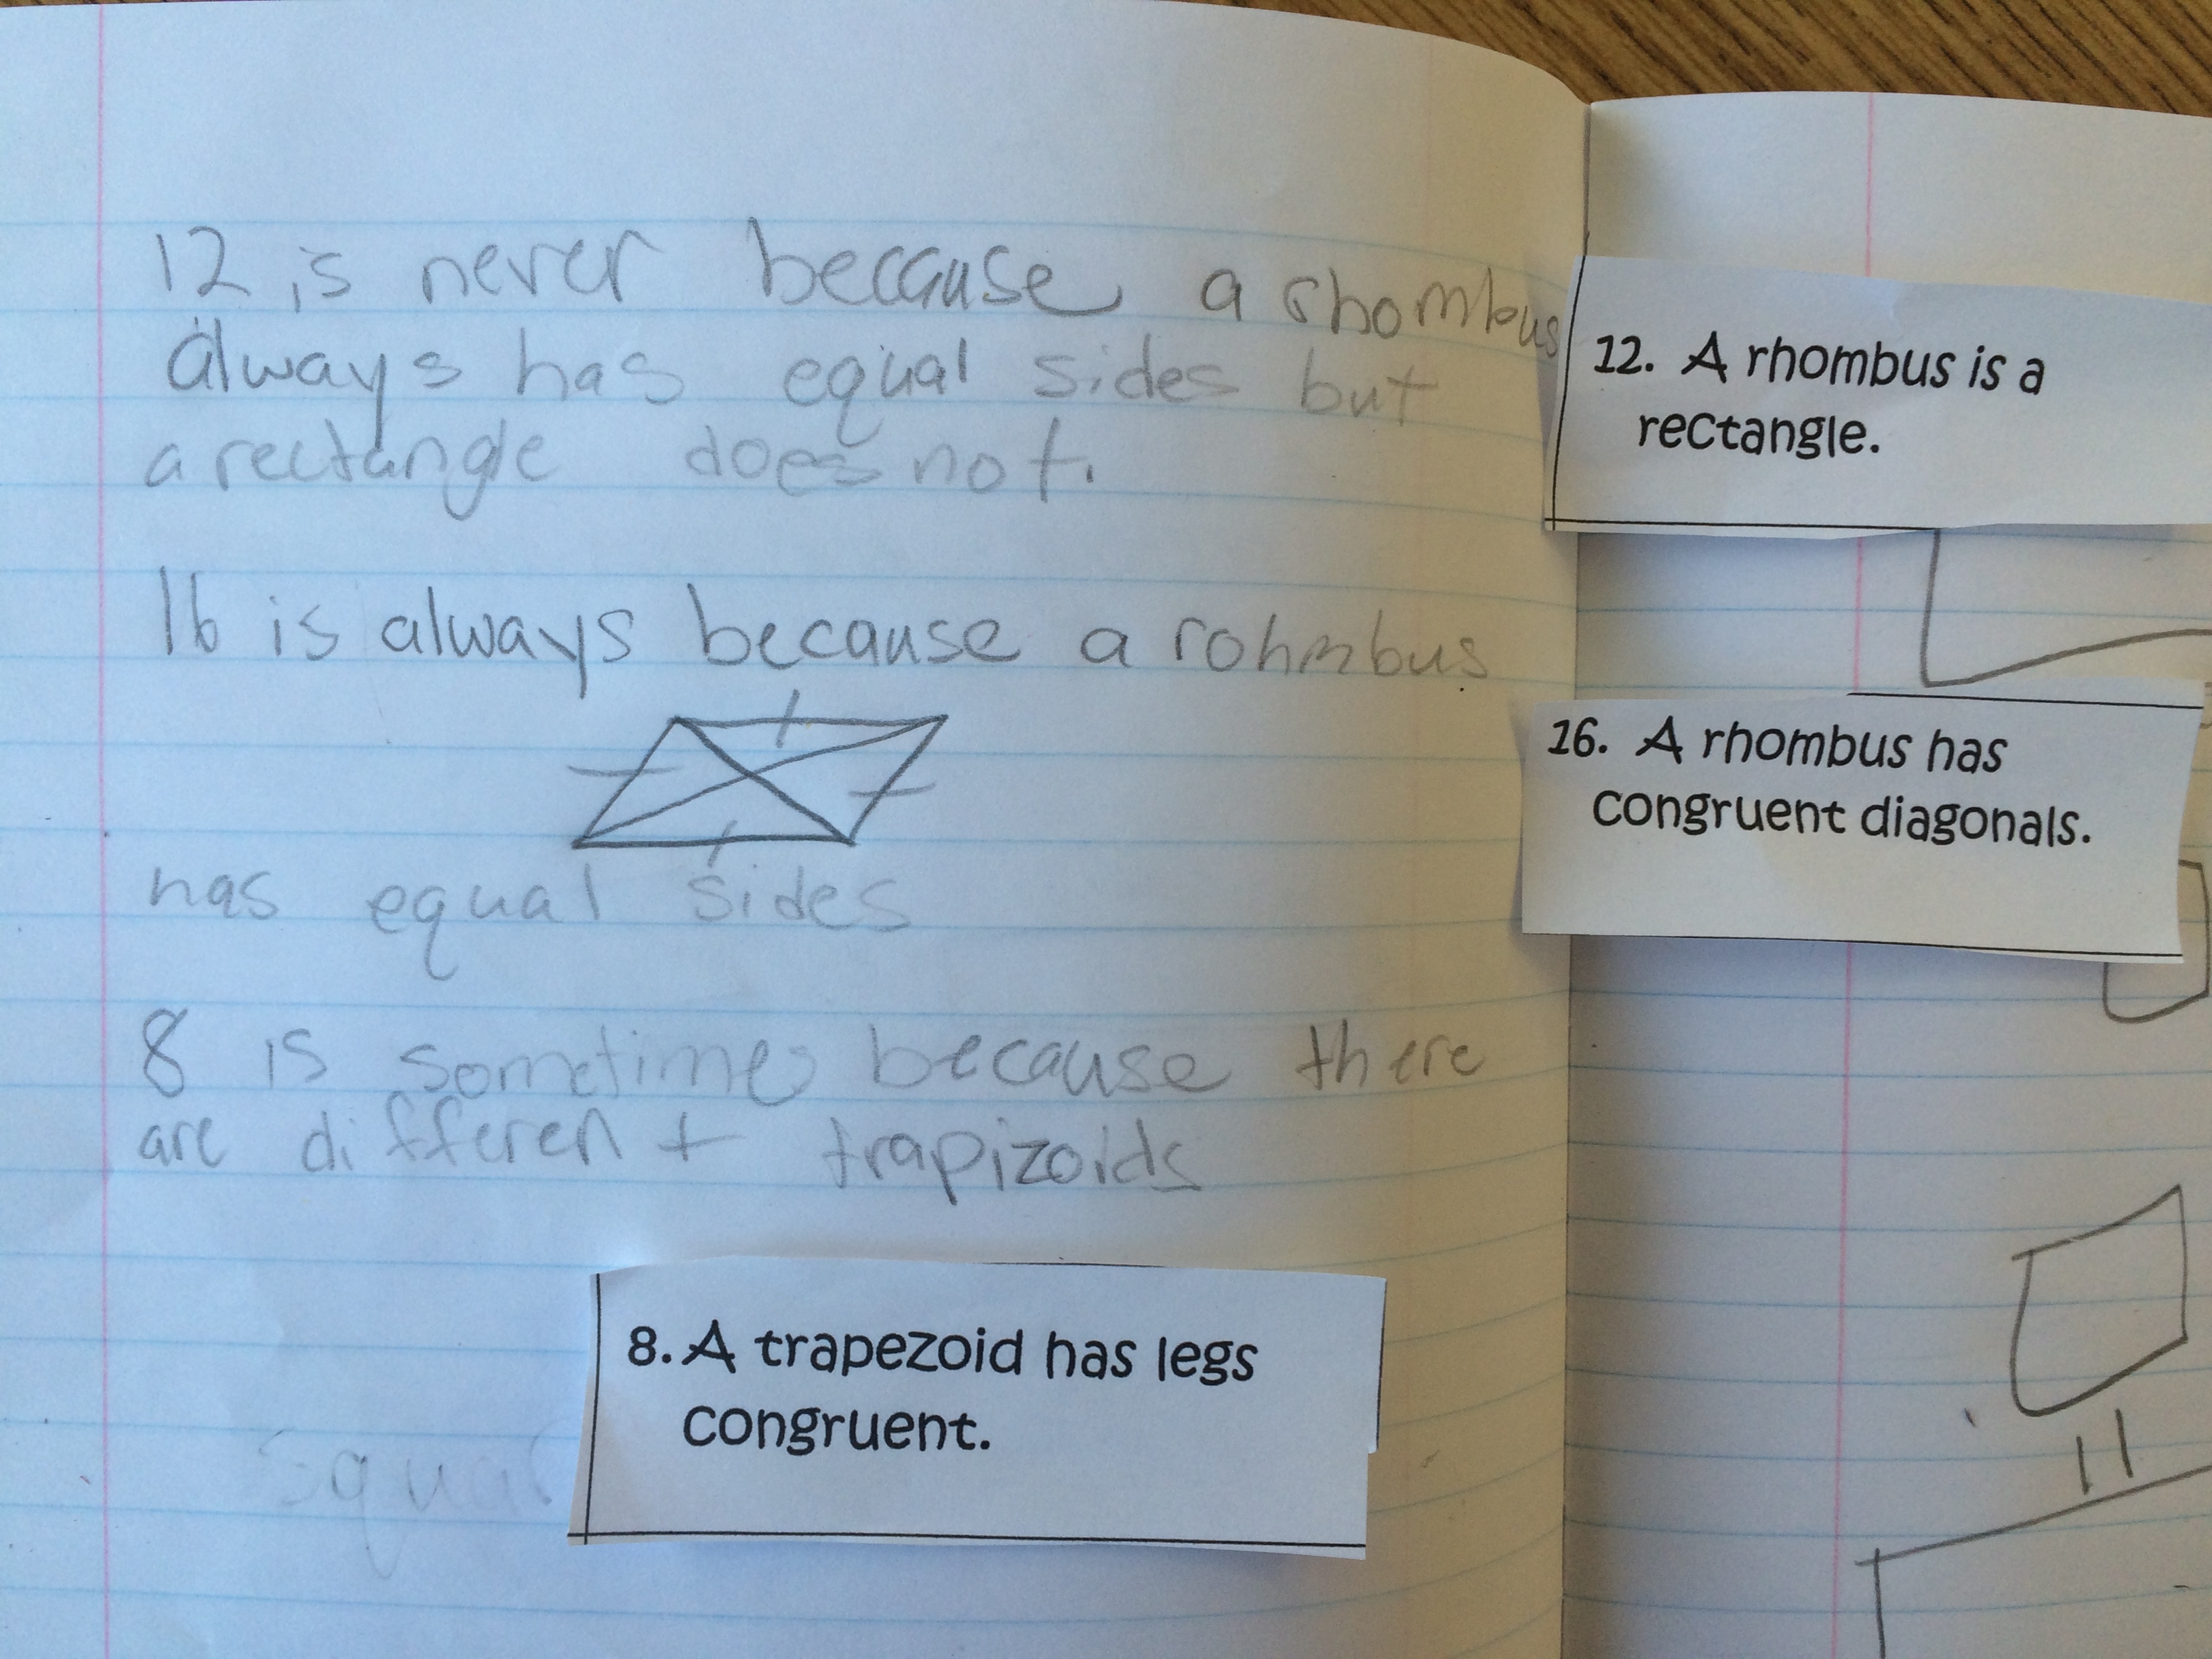 12 is never because a rhombus
always has equal sides but
a rectangle does not.
12. A rhombus is a
rectangle.
16 is always because a rohmbus
has equal sides
16. A rhombus has
congruent diagonals.
8 is sometimes because there
are different trapizoids
8. A trapezoid has legs
congruent.
equal